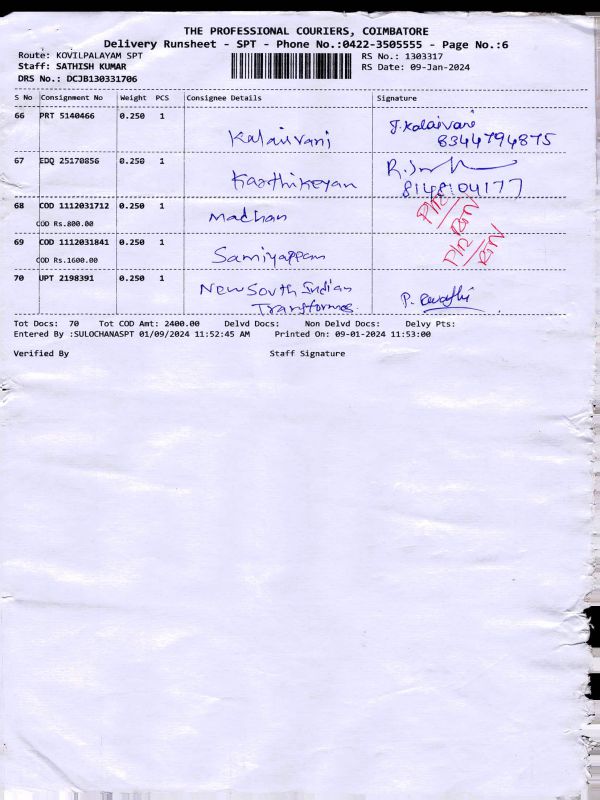 THE PROFESSIONAL COURIERS, COIMBATORE
Delivery Runsheet - SPT - Phone No.:0422-3505555 - Page No.:6
Route: KOVILPALAYAM SPT RS No.: 1303317
Staff: SATHISH KUMAR RS Date: 09-Jan-2024
DRS No.: DCJB130331706
S No Consignment No Weight PCS Consignee Details Signature
66 PRT 5140466 0.250 1 Kalaivani J.Kalaivani
8344794875
67 EDQ 25170856 0.250 1 Karthikeyan
8148104177
68 COD 1112031712 0.250 1 Madhan
COD Rs.800.00
69 COD 1112031841 0.250 1 Samiyappan
COD Rs.1600.00
70 UPT 2198391 0.250 1 New South Indian
Transformes
Tot Docs: 70 Tot COD Amt: 2400.00 Delvd Docs: Non Delvd Docs: Delvy Pts:
Entered By :SULOCHANASPT 01/09/2024 11:52:45 AM Printed On: 09-01-2024 11:53:00
Verified By Staff Signature